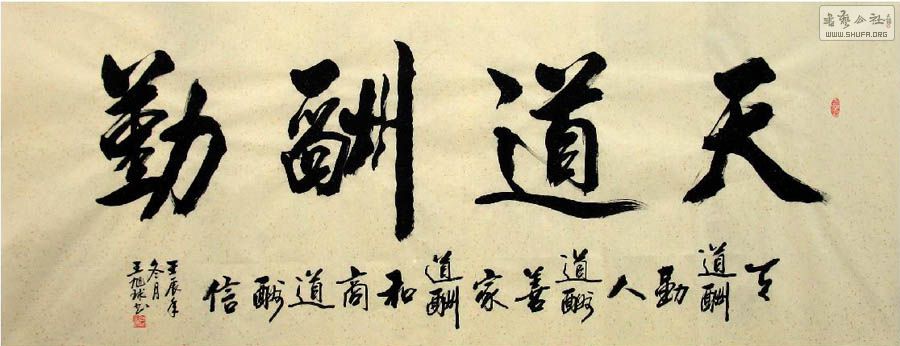 天道酬勤
天道酬勤人道酬善家道酬和商道酬信
壬辰年
冬月
王旭球书
書藝公社
WWW.SHUFA.ORG